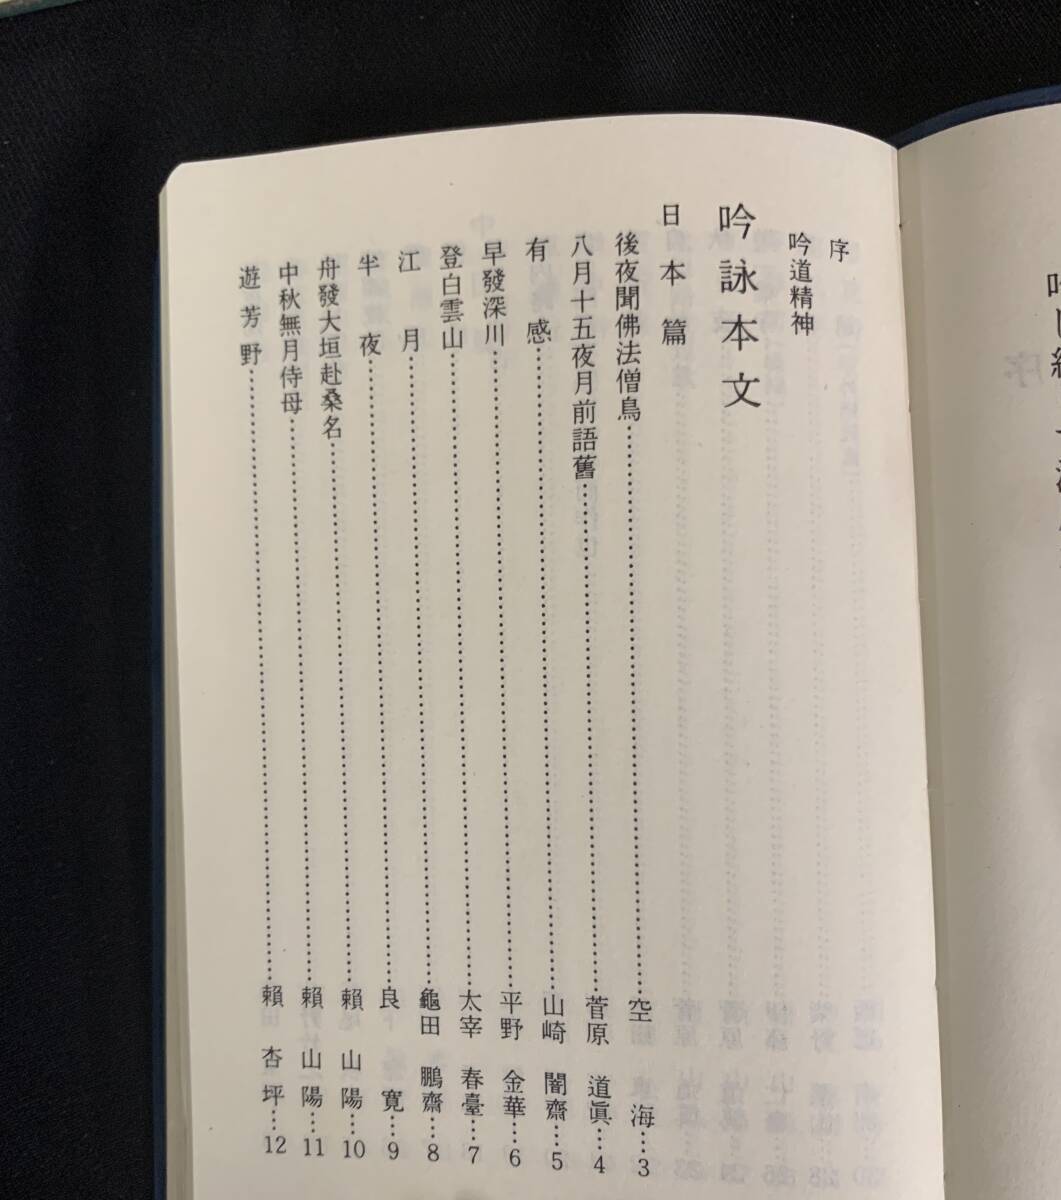 序
吟道精神
吟詠本文
日本篇
後夜聞佛法僧鳥……空海…3
八月十五夜月前語舊……菅原道眞…4
有感……山崎闇齋…5
早發深川……平野金華…6
登白雲山……太宰春臺…7
江月……龜田鵬齋…8
半夜……良寛…9
舟發大垣赴桑名……賴山陽…10
中秋無月侍母……賴山陽…11
遊芳野……賴杏坪…12